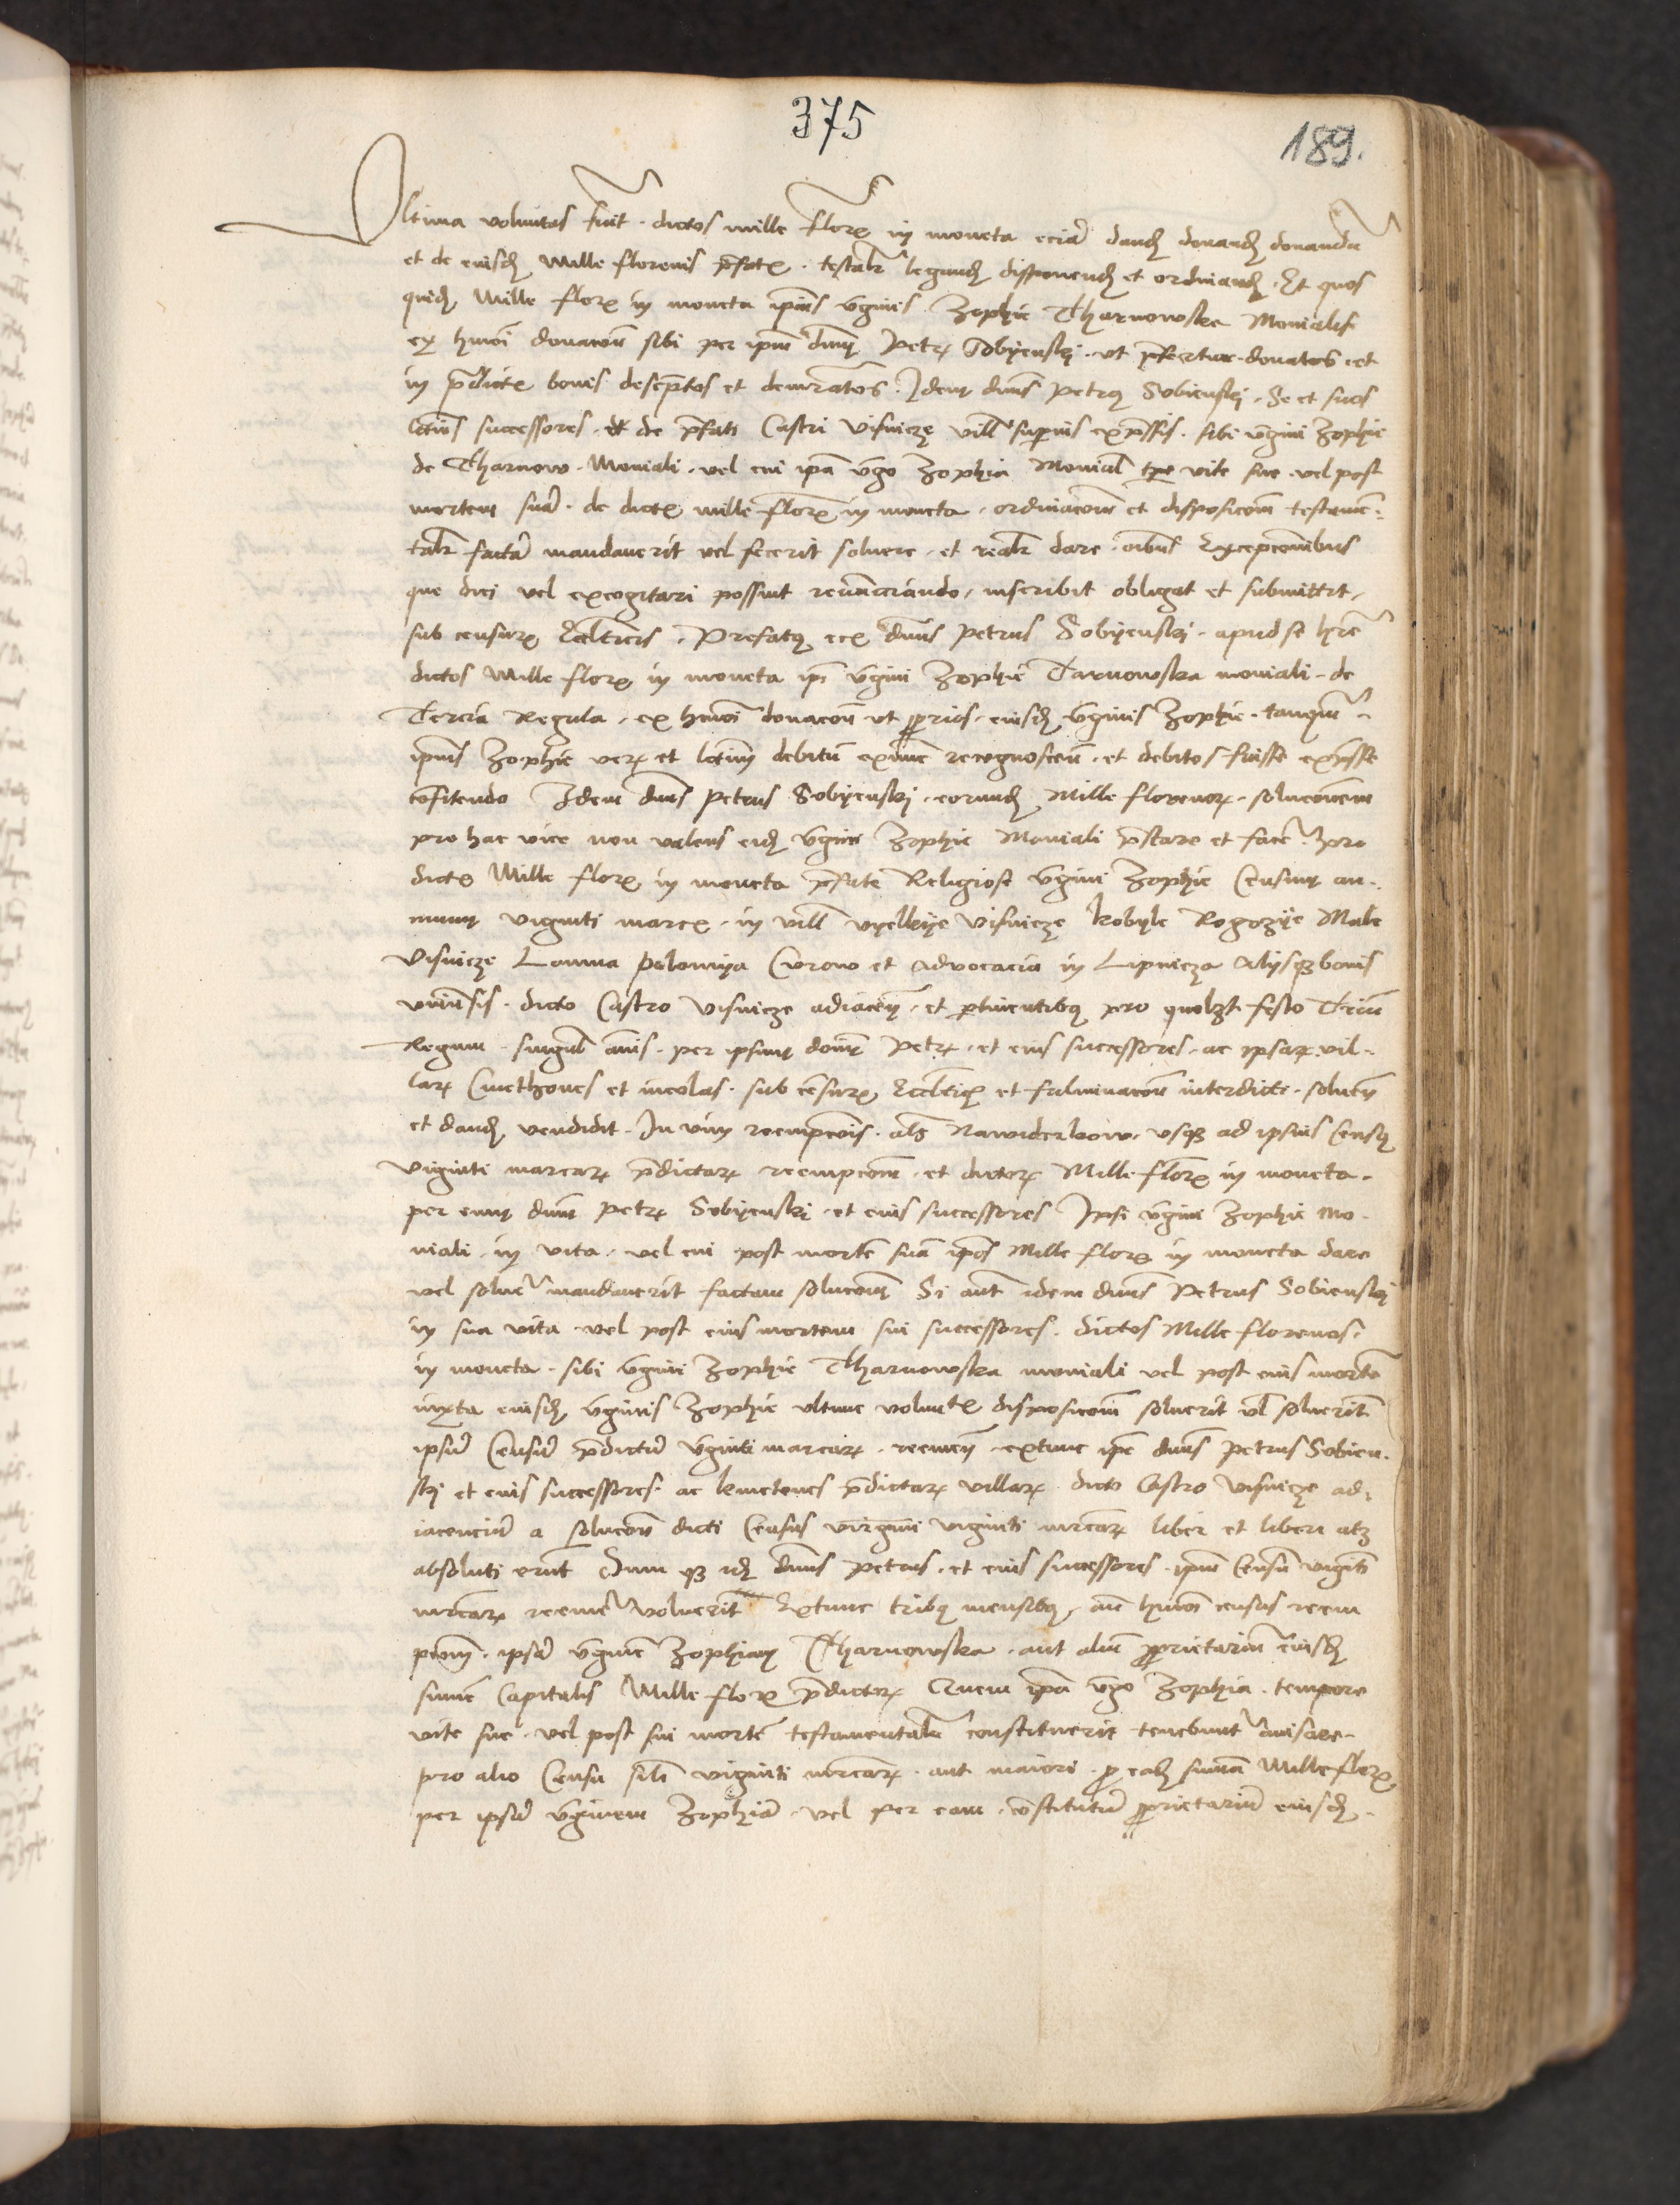 375
189.
Ultima voluntas fuit . dictos mille florꝫ in moneta eciã dandꝫ donandꝫ donandũ
et de eiusdꝫ Mille florenis p̃fatꝫ . testalr̃ legandꝫ disponendꝫ et ordinandꝫ . Et quos
quidꝫ Mille florꝫ in moneta ip̃ius ṽginis Zophie Tharnowska Monialis
ex hm̃oi donacoñ sibi per ipm̃ dñm Petrꝫ Sobyenskj . ut p̃fertur . donatos et
in p̃dictꝫ bonis descp̃tos et demr̃atos . Idem dñus Petrꝰ Sobienskj . Se et suos
lttm̃os successores . de p̃fati Castri Visnicze vill̃ supius exp̃ssis . sibi ṽgini Zophie
de Tharnow . Moniali . vel cui ip̃a ṽgo Zophia Monial̃ tpe vite sue . vel post
mortem suã . de dictꝫ mille florꝫ in moneta . ordinacoem et disposicoem testamen-
talr̃ factã mandauerit vel fecerit soluere . et realr̃ dare . oĩbus Excepcionibus
que dici vel excogitari possint renũciando , inscribit obligat et submittit ,
sub censurꝫ Ecclt̃icis . Prefatꝰ ecꝫ dñus Petrus Sobyenskj . apud se hr̃e
dictos Mille florꝫ in moneta ip̃i ṽgini Zophie Tarnowska moniali . de
Tercia Regula . ex hm̃oi donacoñ ut p̱rius . eiusdꝫ ṽginis Zophie . tanqm̃
ip̃ius Zophie verꝫ et lttm̃ debitũ extunc recognoscen̄ . et debitos fuisse exp̃sse
confitendo Idem dñus Petrus Sobyenskj . eorundꝫ Mille florenorꝫ . solucionem
pro hac vice non valens eidꝫ ṽgini Zophie Moniali p̃stare et facer̃ . pro
dictis Mille florꝫ in moneta p̃fate Religiose ṽgini Zophie Censum an-
nuum viginti marcꝫ . in vill̃ vyelkye Visnicze kobyle Rogozye Male
Visnicze Lomna Polomya Curow et Advocacia in Lipnicza Alijsqꝫ bonis
vniũsis . dicto Castro Visnicze adiaceñ . et p̱tinentibꝰ pro quolꝫt festo Triũ
Regum . singul̃ annis . per ipsum dom̃ Petrꝫ . et eius successores . ac ipsarꝫ vil-
larꝫ Cmethones et incolas . sub censurꝫ Ecclt̃icꝫ et fulminacoñ interdicti . soluen̄
et dandꝫ vendidit . In vim reempcois . als̃ Nawiderkow . vsqꝫ ad ipsius Censꝰ
viginti marcarꝫ p̃dictarꝫ reempcoem . et dictorꝫ Mille florꝫ in moneta .
per eum dñm Petrꝫ Sobyenskj . et eius successores Ipsi ṽgini Zophie Mo-
niali . in vita . vel cui post mortẽ suã ip̃os Mille florꝫ in moneta dare
vel soluer̃ mandauerit factam solucoem Si aut̃ idem dñus Petrus Sobienskj
in sua vita vel post eius mortem sui successores . dictos Mille florenos .
in moneta . sibi ṽgini Zophie Tharnowska moniali vel post eius mortẽ
iuxta eiusdꝫ ṽginis Zophie vltime voluntꝫ disposicoem soluerit vl̃ soluerint
ipsũ Censũ p̃dictũ viginti marcarꝫ . reemen̄ . extunc ip̃e dñus Petrus Sobien-
skj et eius successores . ac kmetones p̃dictarꝫ villarꝫ dicto Castro Visnicze ad-
iacenciũ a solucoñ dicti Census viginti mr̃carꝫ liber et liberi atqꝫ
absoluti erunt Dum qꝫ idꝫ dñus Petrus . et eius successores . ipm̃ Censũ viginti
mr̃carꝫ reemer̃ voluerit Extunc tribꝰ mensibꝰ , añ hm̃oi census reem
pcoem . ipsã ṽginẽ Zophiam Tharnowska . aut aliũ p̱prietariũ eiusdꝫ
summe Capitalis Mille florꝫ p̃dictorꝫ Quem ip̃a ṽgo Zophia . tempore
vite sue . vel post sui mortẽ testamentalr̃ constituerit tenebunt̃ auisare .
pro alio Censu sil̃i viginti mr̃carꝫ . aut maiori . p̱ eadꝫ summa Mille florꝫ
per ipsã ṽginem Zophiã . vel per eam . constitutũ p̱prietariũ eiusdꝫ .